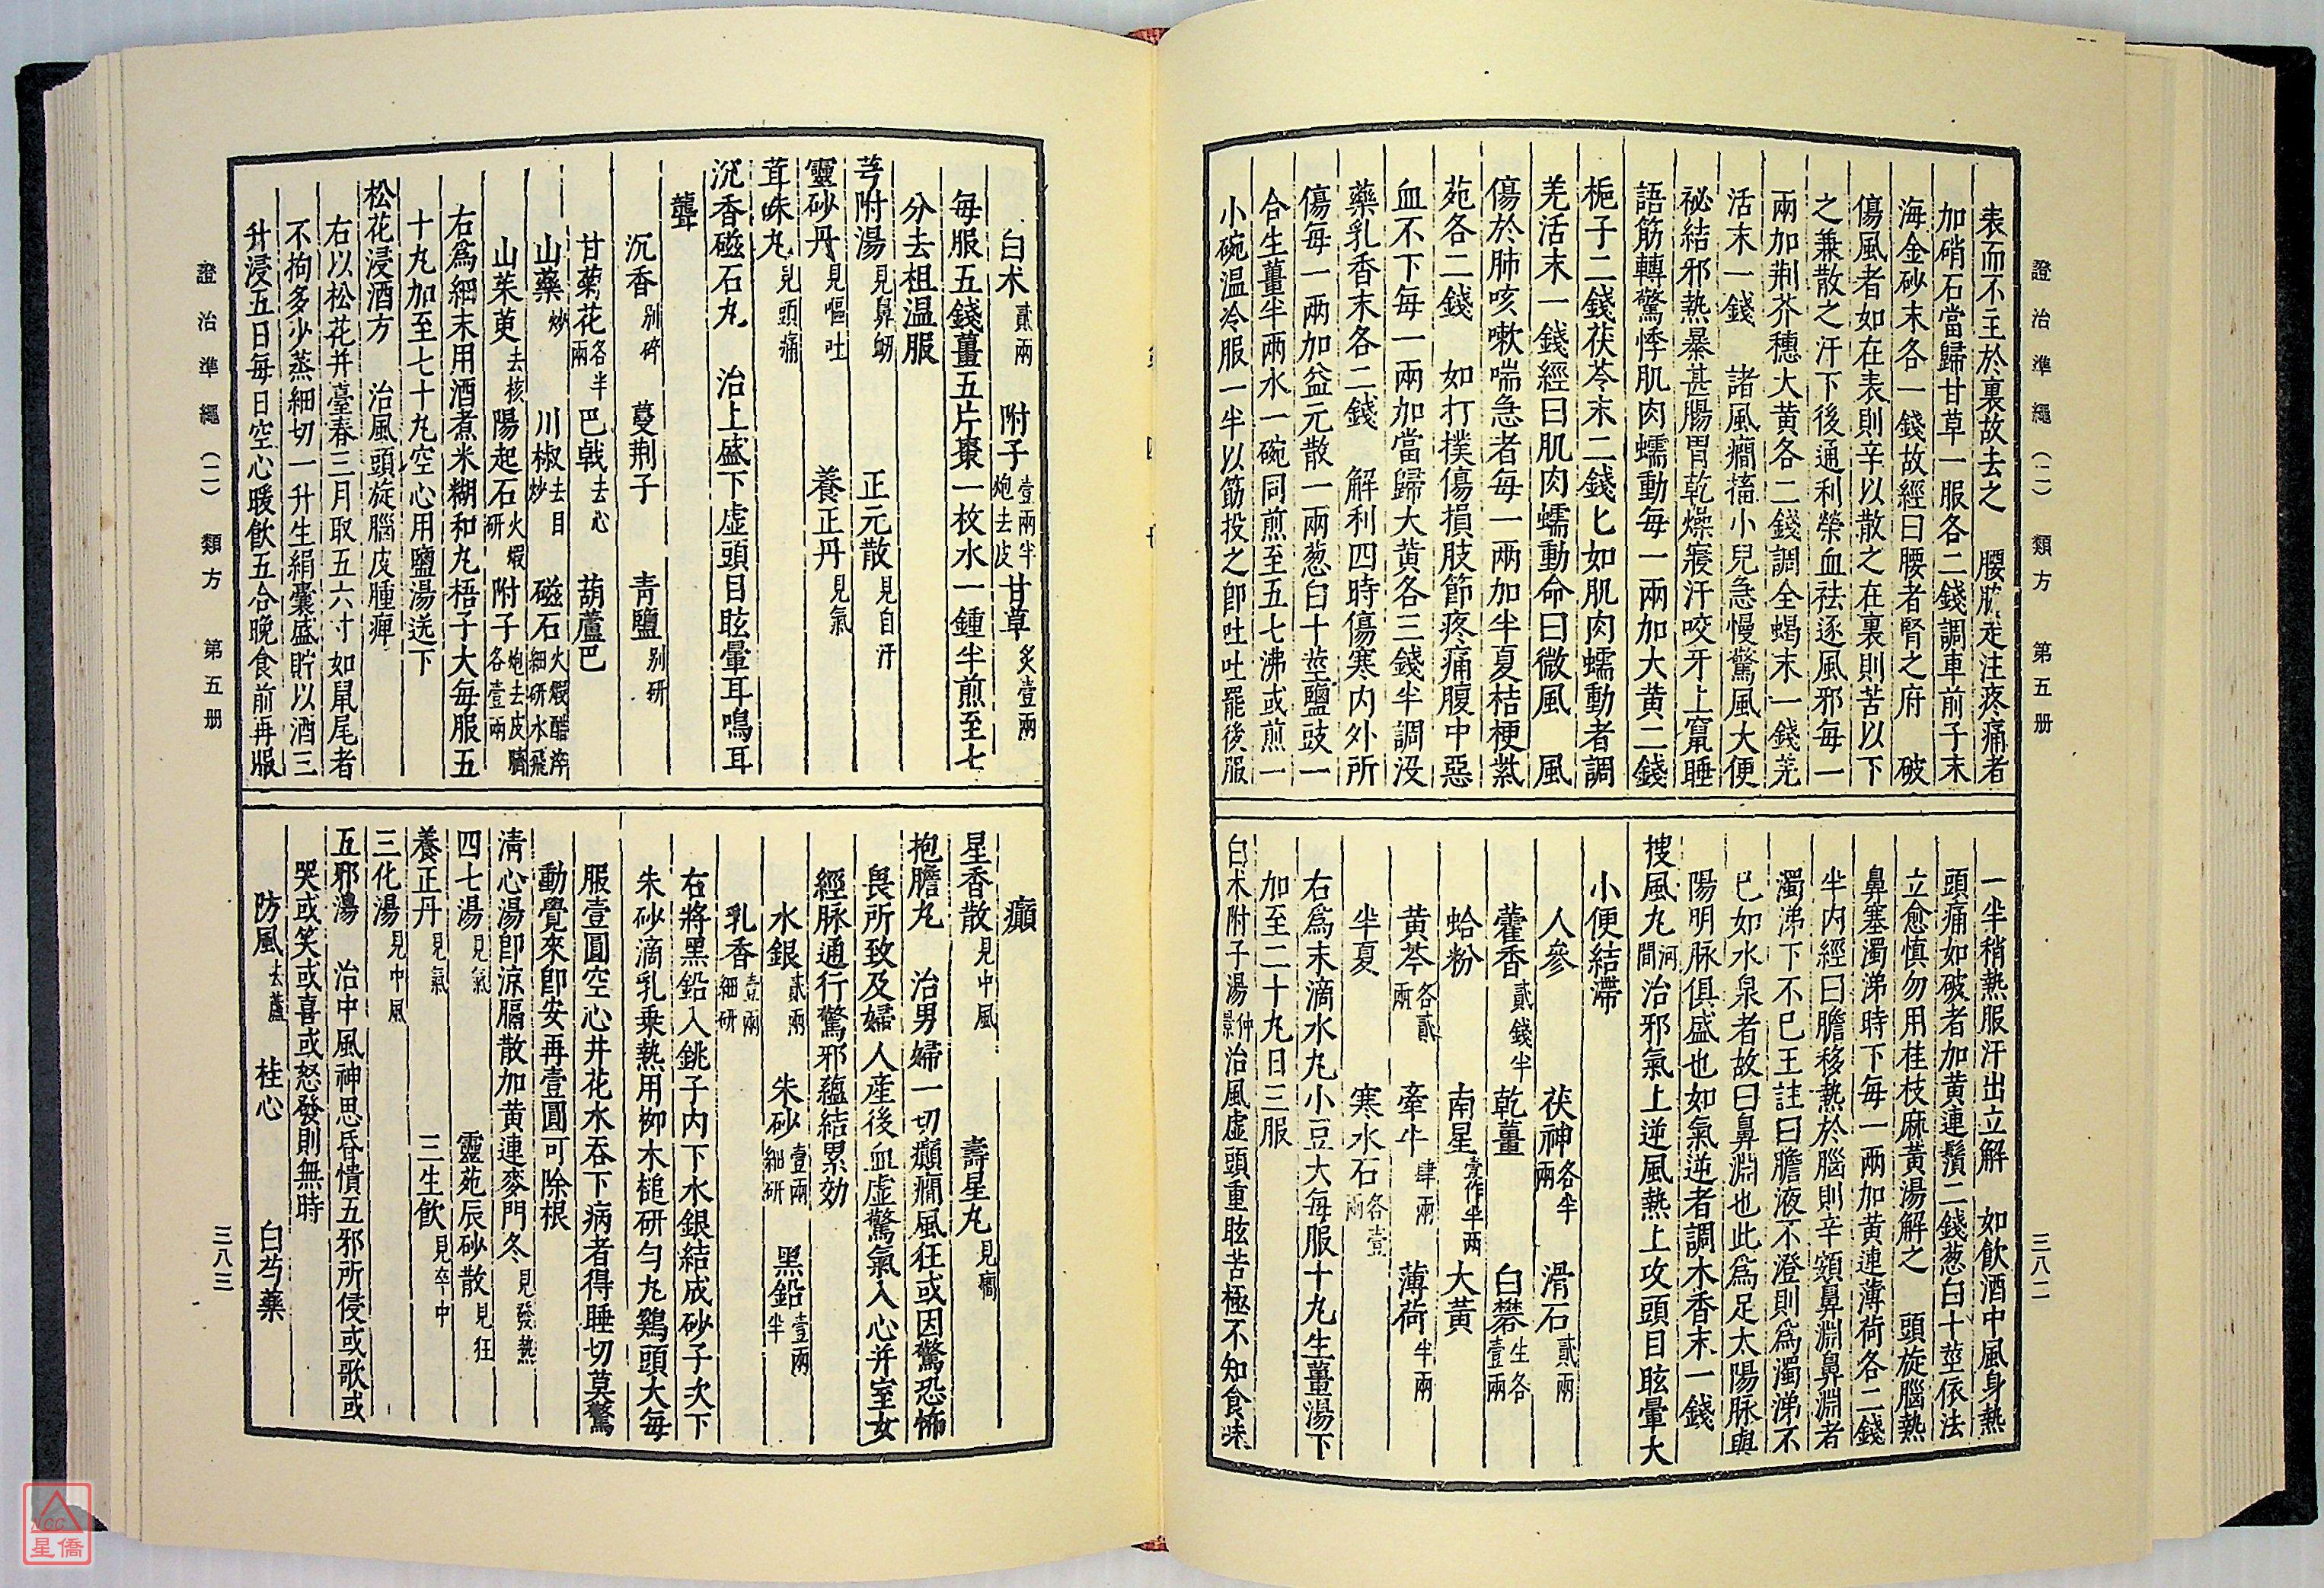 證治準繩（二） 類方 第五册
三八二
表而不主於裏故去之 腰胯走注疼痛者
加硝石當歸甘草一服各二錢調車前子末
海金砂末各一錢故經曰腰者腎之府 破
傷風者如在表則辛以散之在裏則苦以下
之兼散之汗下後通利榮血祛逐風邪每一
兩加荆芥穗大黄各二錢調全蝎末一錢羌
活末一錢 諸風癎搐小兒急慢驚風大便
祕結邪熱暴甚腸胃乾燥寢汗咬牙上竄睡
語筋轉驚悸肌肉蠕動每一兩加大黄二錢
梔子二錢茯苓末二錢匕如肌肉蠕動者調
羌活末一錢經曰肌肉蠕動命曰微風 風
傷於肺咳嗽喘急者每一兩加半夏桔梗紫
苑各二錢 如打撲傷損肢節疼痛腹中惡
血不下每一兩加當歸大黄各三錢半調没
藥乳香末各二錢 解利四時傷寒内外所
傷每一兩加益元散一兩葱白十莖鹽豉一
合生薑半兩水一碗同煎至五七沸或煎一
小碗温冷服一半以筯投之卽吐吐罷後服
一半稍熱服汗出立解 如飲酒中風身熱
頭痛如破者加黄連鬚二錢葱白十莖依法
立愈慎勿用桂枝麻黄湯解之 頭旋腦熱
鼻塞濁涕時下每一兩加黄連薄荷各二錢
半内經曰膽移熱於腦則辛頞鼻淵鼻淵者
濁涕下不巳王註曰膽液不澄則爲濁涕不
巳如水泉者故曰鼻淵也此爲足太陽脉與
陽明脉俱盛也如氣逆者調木香末一錢
搜風丸河間治邪氣上逆風熱上攻頭目眩暈大
小便結滯
人參 茯神各半兩 滑石貳兩
藿香貳錢半 乾薑 白礬生各壹兩
蛤粉 南星壹作半兩 大黄
黄芩各貳兩 牽牛肆兩 薄荷半兩
半夏 寒水石各壹兩
右爲末滴水丸小豆大每服十丸生薑湯下
加至二十丸日三服
白术附子湯仲景治風虛頭重眩苦極不知食味
白术貳兩 附子壹兩半炮去皮 甘草炙壹兩
每服五錢薑五片棗一枚水一鍾半煎至七
分去柤温服
芎附湯見鼻衂 正元散見自汗
靈砂丹見嘔吐 養正丹見氣
茸硃丸見頭痛
沉香磁石丸 治上盛下虛頭目眩暈耳鳴耳
聾
沉香别碎 蔓荆子 青鹽别研
甘菊花各半兩 巴戟去心 葫蘆巴
山藥炒 川椒去目炒 磁石火煆醋淬細研水飛
山茱萸去核 陽起石火煆研 附子炮去皮臍各壹兩
右爲細末用酒煮米糊和丸梧子大每服五
十丸加至七十丸空心用鹽湯送下
松花浸酒方 治風頭旋腦皮腫痹
右以松花并臺春三月取五六寸如鼠尾者
不拘多少蒸細切一升生絹囊盛貯以酒三
升浸五日每日空心暖飲五合晚食前再服
癲
星香散見中風 壽星丸見癎
抱膽丸 治男婦一切癲癎風狂或因驚恐怖
畏所致及婦人産後血虛驚氣入心并室女
經脉通行驚邪蘊結累効
水銀貳兩 朱砂壹兩細研 黑鉛壹兩半
乳香壹兩細研
右將黑鉛入銚子内下水銀結成砂子次下
朱砂滴乳乘熱用柳木槌研勻丸鷄頭大每
服壹圓空心井花水吞下病者得睡切莫驚
動覺來卽安再壹圓可除根
清心湯卽涼膈散加黄連麥門冬見發熱
四七湯見氣 靈苑辰砂散見狂
養正丹見氣 三生飲見卒中
三化湯見中風
五邪湯 治中風神思昏憒五邪所侵或歌或
哭或笑或喜或怒發則無時
防風去蘆 桂心 白芍藥
證治準繩（二） 類方 第五册
三八三
NCC
星僑